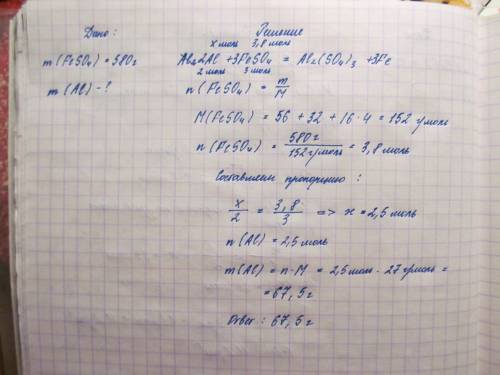 Дано :
Решение
x моль 3,8 моль
m (FeSO₄) = 580 г
2Al + 3FeSO₄ = Al₂(SO₄)₃ + 3Fe
2 моль 3 моль
m (Al) - ?
n (FeSO₄) = m/M
M(FeSO₄) = 56 + 32 + 16·4 = 152 г/моль
n (FeSO₄) = 580 г / 152 г/моль = 3,8 моль
Составляем пропорцию :
x/2 = 3,8/3 => x = 2,5 моль
n (Al) = 2,5 моль
m(Al) = n·M = 2,5 моль · 27 г/моль =
= 67,5 г
Ответ : 67,5 г